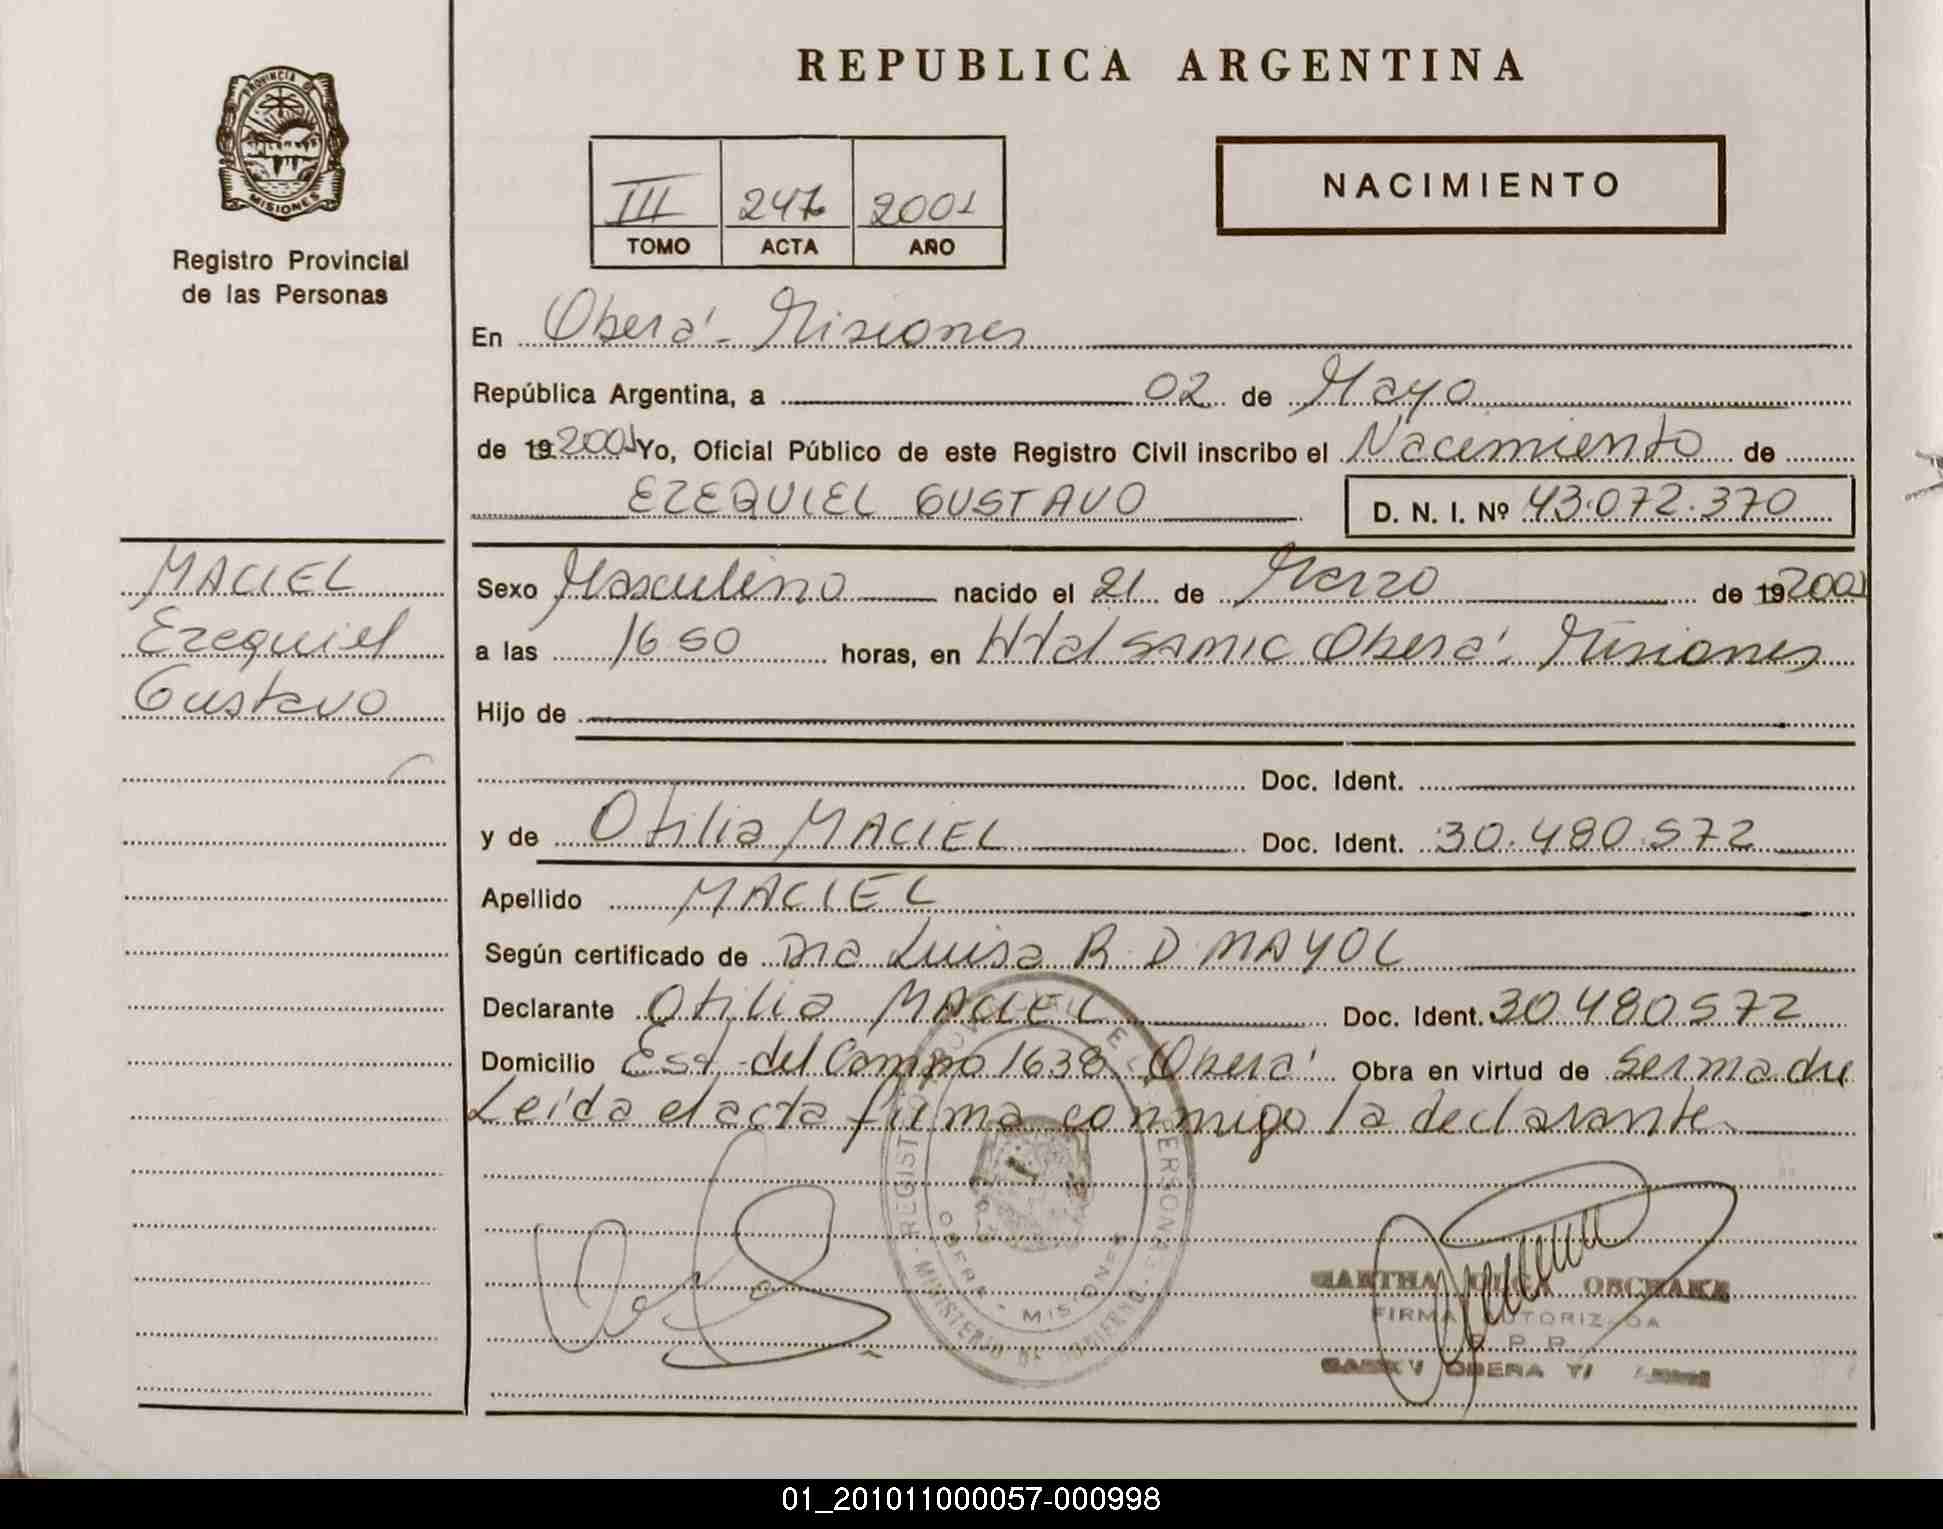 REPUBLICA ARGENTINA
PROVINCIA DE
MISIONES
Registro Provincial
de las Personas
III 247 2001
TOMO ACTA AÑO
NACIMIENTO
En Oberá - Misiones
República Argentina, a 02 de Mayo
de 19 2001 Yo, Oficial Público de este Registro Civil inscribo el Nacimiento de
EZEQUIEL GUSTAVO D. N. I. Nº 43.072.370
MACIEL
Ezequiel
Gustavo
Sexo Masculino nacido el 21 de Marzo de 19 2001
a las 16 50 horas, en Htal SAMIC Oberá. Misiones
Hijo de
Doc. Ident.
y de Otilia MACIEL Doc. Ident. 30.480.572
Apellido MACIEL
Según certificado de Dra Luisa R. D MAYOL
Declarante Otilia MACIEL Doc. Ident. 30480572
Domicilio Est. del Campo 1638 Oberá Obra en virtud de ser madre
Leída el acta firma conmigo la declarante
OBERA - MISIONES
MINISTERIO DE GOBIERNO
MARTHA OLGA
FIRMA AUTORIZADA
R. P. P.
OBERA
01_201011000057-000998